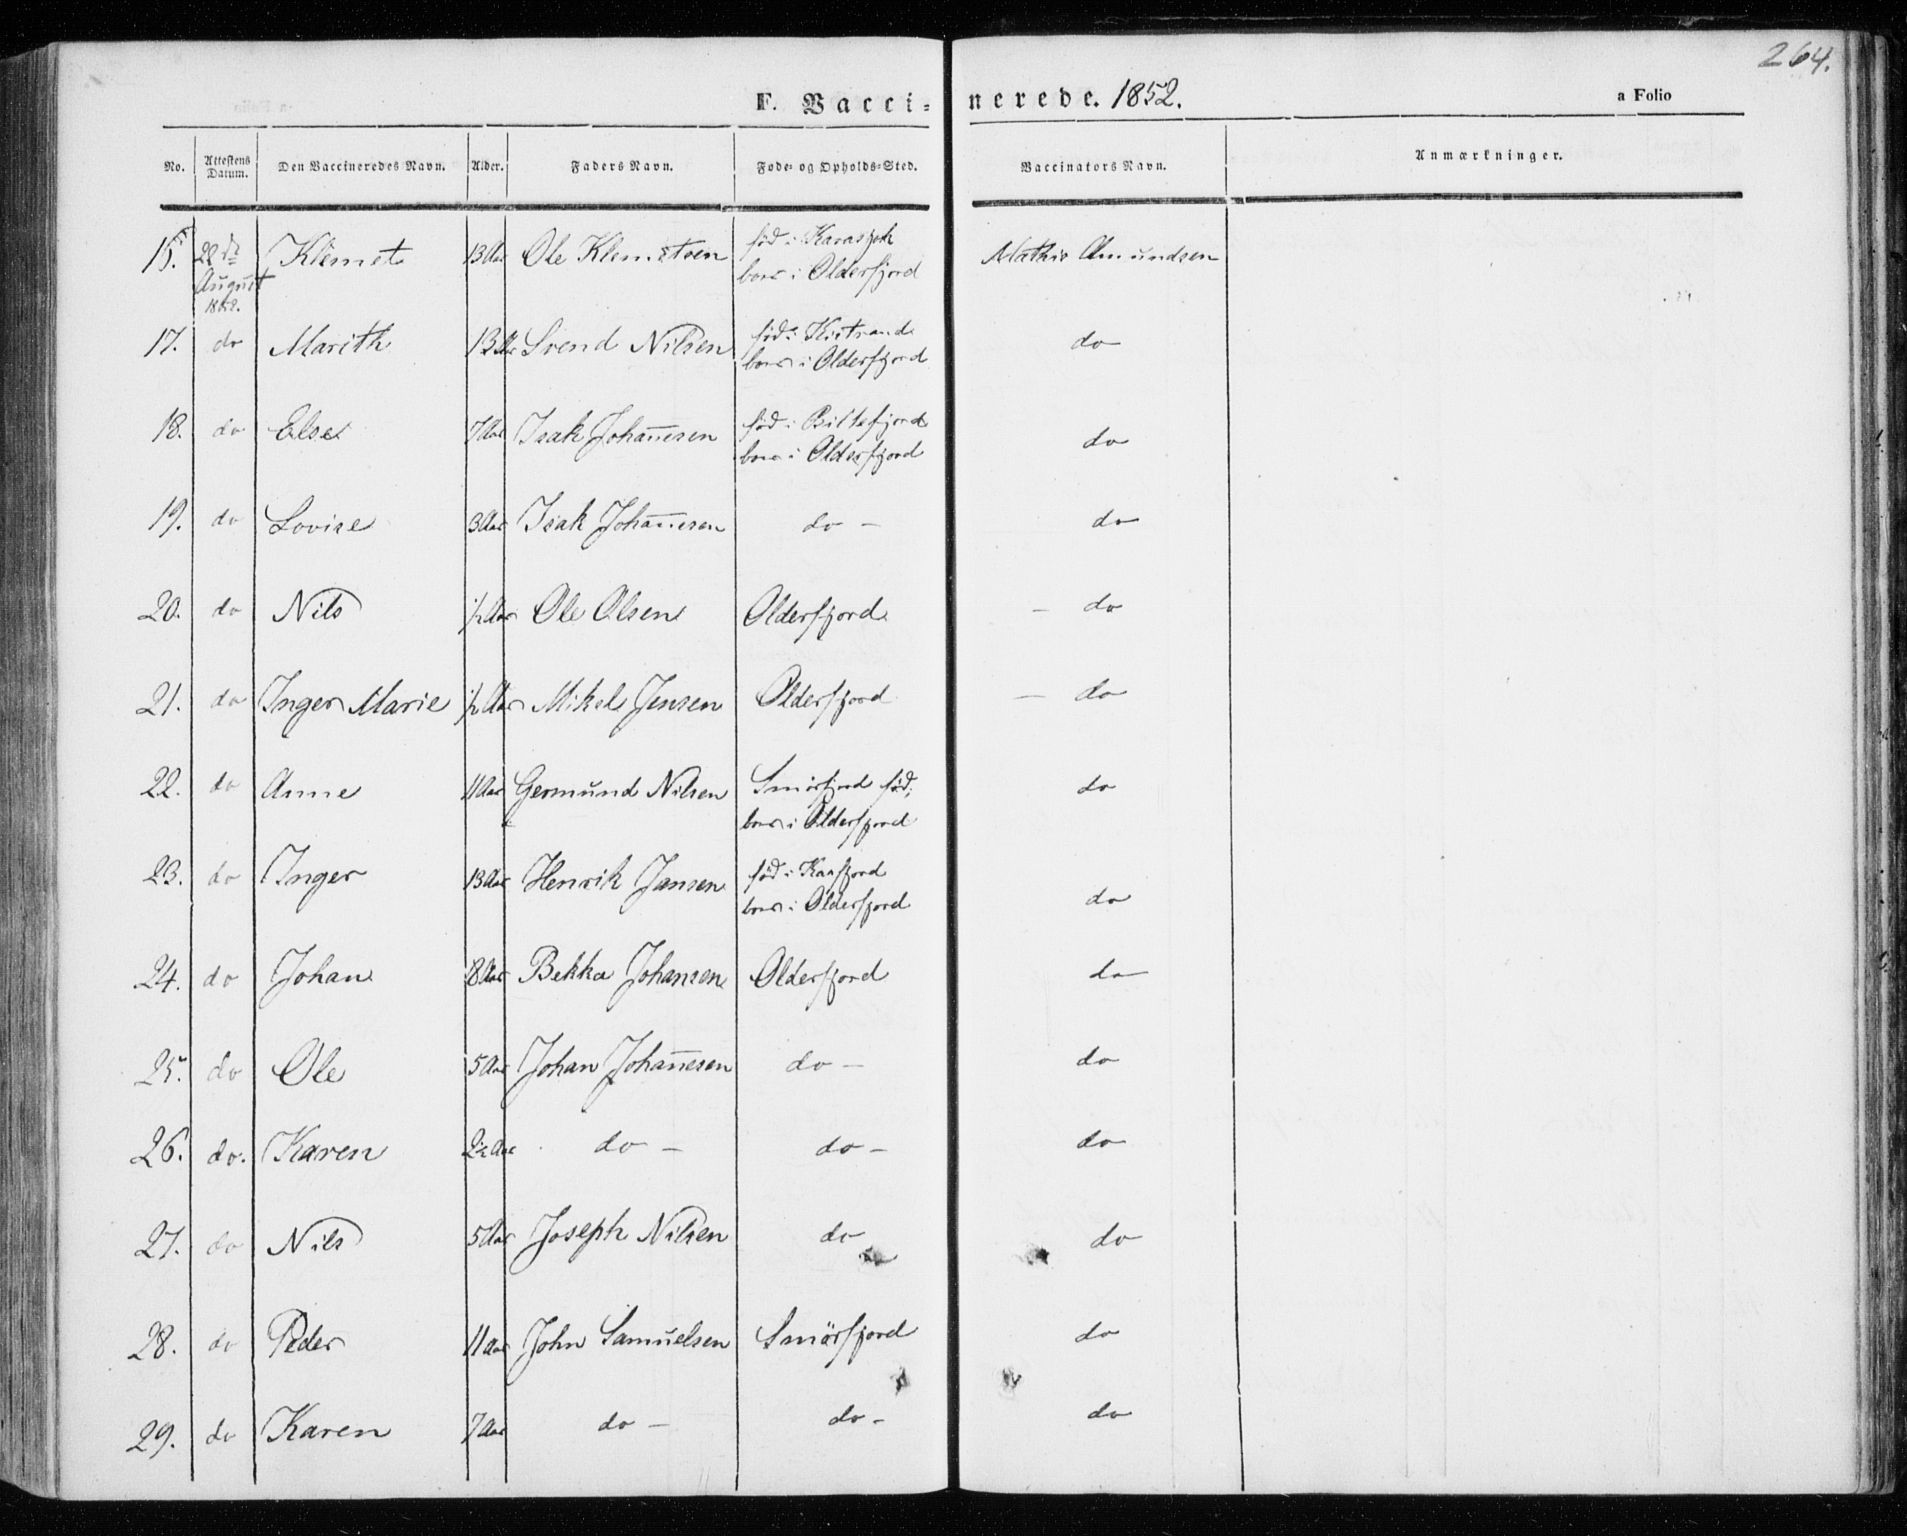 264.
F. Vaccinerede. 1852.
a Folio
No. Attestens Datum. Den Vaccineredes Navn. Alder. Faders Navn. Føde- og Opholds-Sted. Vaccinators Navn. Anmærkninger.
August 1852. Klemet 13 Aar Ole Klemetsen fød i Karasjok boer i Olderfjord Mathis Amundsen
17. do Marith 13 Aar Svend Nilsen fød i Kistrand boer i Olderfjord do
18. do Else 7 Aar Isak Johan̄esen fød i Billefjord boer i Olderfjord do
19. do Lovise 3 Aar Isak Johan̄esen do – do
20. do Nils ½ Aar Ole Olsen Olderfjord – do
21. do Inger Marie ½ Aar Mikel Jensen Olderfjord – do
22. do Anne 11 Aar Germund Nilsen Smörfjord fød, boer i Olderfjord do
23. do Inger 13 Aar Henrik Jansen fød i Kaafjord boer i Olderfjord do
24. do Johan 8 Aar Bekka Johansen Olderfjord do
25. do Ole 5 Aar Johan Johan̄esen do – do
26. do. Karen 2½ Aar do – do – do
27. do Nils 5 Aar Joseph Nilsen do do
28. do Peder 11 Aar John Samuelsen Smörfjord do
29. do Karen 7 Aar do – do – do